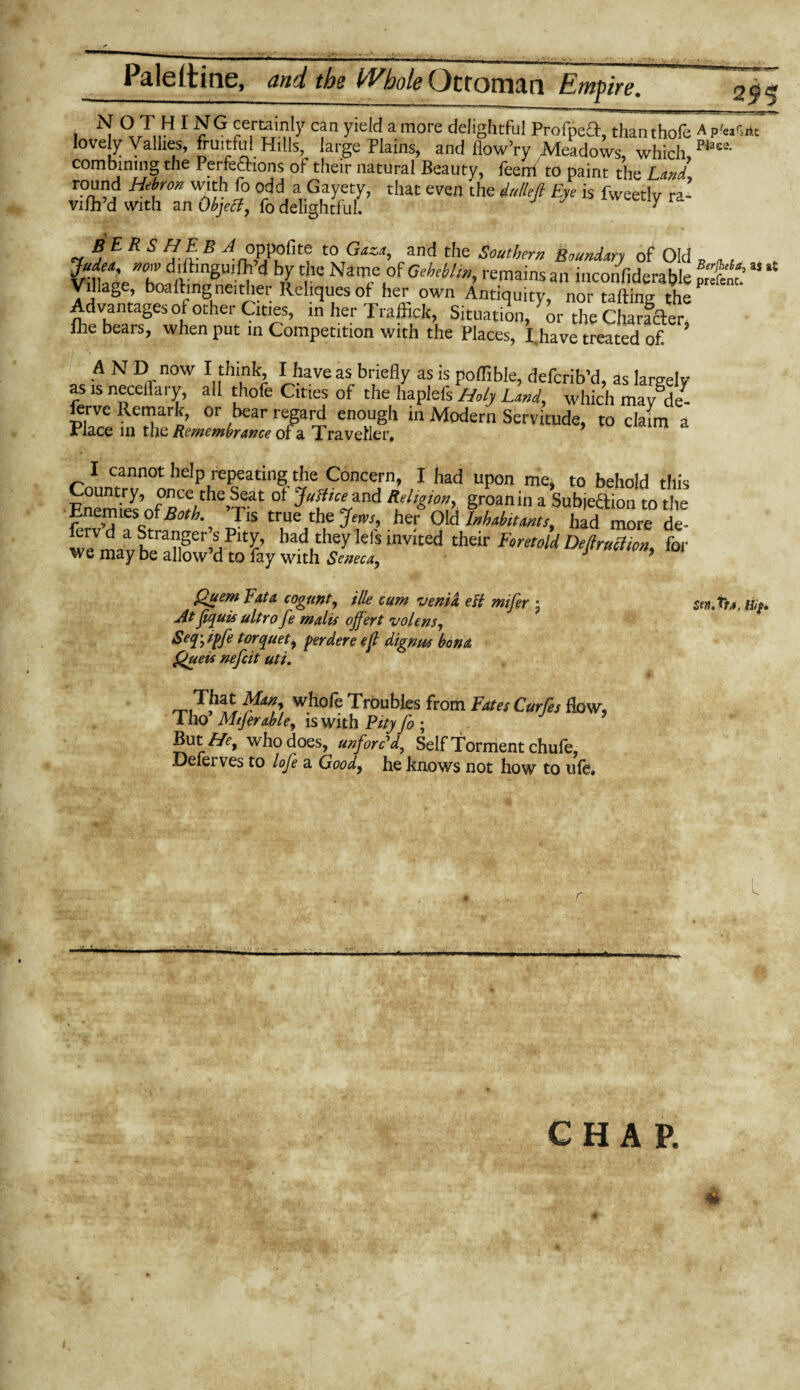 Paleſtine, and the Whole Ottoman Empire. 295
NOTHING certainly can yield a more delightful Proſpect, than thoſe
lovely Vallies, fruitful Hills, large Plains, and flow'ry Meadows, which,
combining the Perfections of their natural Beauty, ſeem to paint the Land,
round Hebron with ſo odd a Gayety, that even the dulleſt Eye is ſweetly ra-
viſh'd with an Object, ſo delightful.
A pleaſant
Place.
BERSHEBA oppoſite to Gaza, and the Southern Boundary of Old
Judea, now diſtinguiſh'd by the Name of Geheblin, remains an inconſiderable
Village, boaſting neither Reliques of her own Antiquity, nor taſting the
Advantages of other Cities, in her Traffick, Situation, or the Character,
ſhe bears, when put in Competition with the Places, I have treated of.
Berſheba, as at
preſent.
AND now I think, I have as briefly as is poſſible, deſcrib'd, as largely
as is neceſſary, all thoſe Cities of the hapleſs Holy Land, which may de-
ſerve Remark, or bear regard enough in Modern Servitude, to claim a
Place in the Remembrance of a Traveller.
I cannot help repeating the Concern, I had upon me, to behold this
Country, once the Seat of Juſtice and Religion, groan in a Subjection to the
Enemies of Both. 'Tis true the Jews, her Old Inhabitants, had more de-
ſerv'd a Stranger's Pity, had they leſs invited their Foretold Deſtruction, for
we may be allow'd to ſay with Seneca,
Quem Fata cogunt, ille cum veniâ eſt miſer;
At ſiquis ultro ſe malis offert volens,
Seq; ipſe torquet, perdere eſt dignus bona
Queis neſcit uti.
Sen. Tra. Hip.
That Man, whoſe Troubles from Fates Curſes flow,
Tho' Miſerable, is with Pity ſo;
But He, who does, unforc'd, Self Torment chuſe,
Deſerves to loſe a Good, he knows not how to uſe.
CHAP.